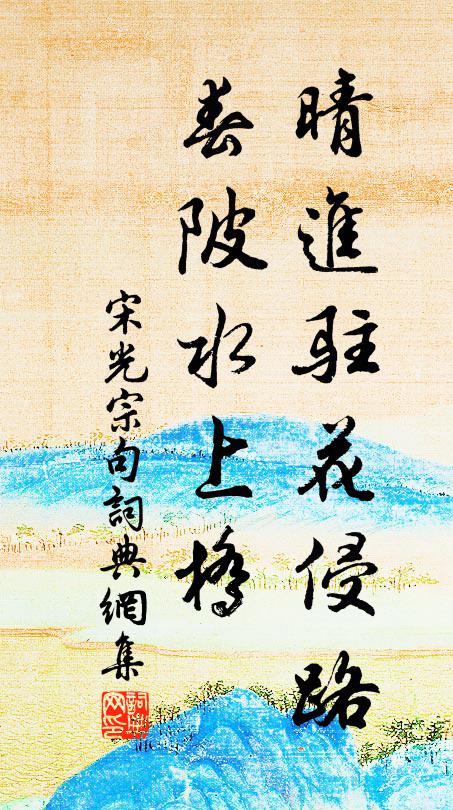 晴進駐花侵路
春陂水上橋
宋光宗句詞典網集